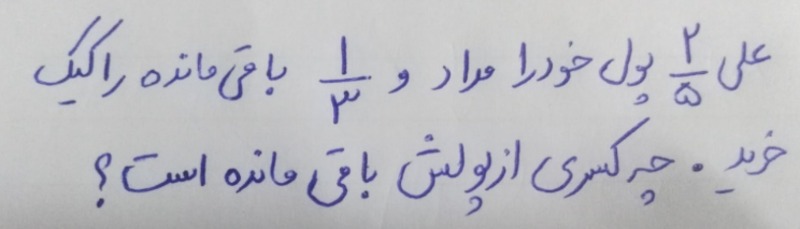 علی ۲/۵ پول خودرا مداد و ۱/۳ باقی مانده را کیک
خرید . چه کسری از پولش باقی مانده است؟